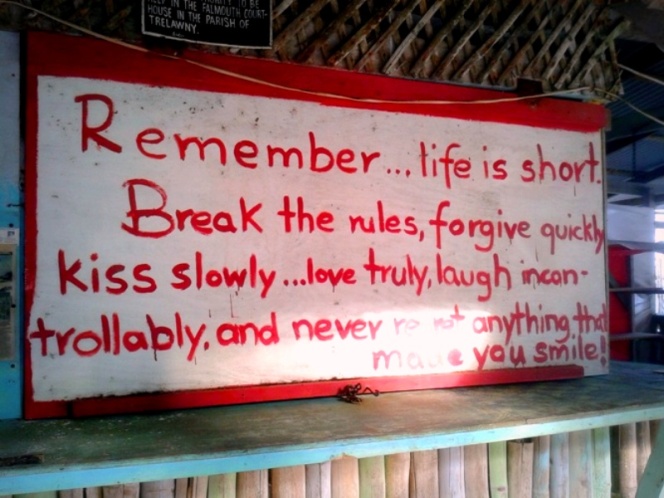 TO BE
IN THE FALMOUTH COURT-
HOUSE IN THE PARISH OF
TRELAWNY.
Remember... life is short.
Break the rules, forgive quickly
kiss slowly...love truly, laugh incan-
trollably, and never anything that
made you smile!